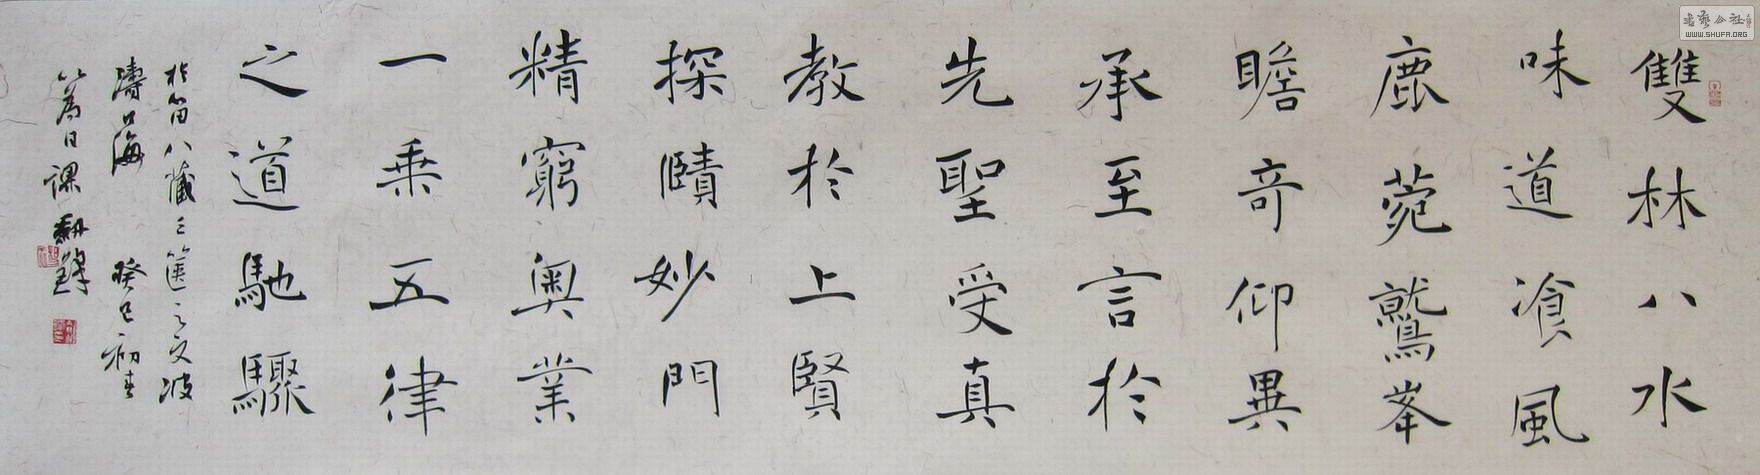 雙林八水
味道飡風
鹿菀鷲峯
瞻奇仰異
承至言於
先聖受真
教於上賢
探賾妙門
精窮奧業
一乘五律
之道馳驟
於留八藏三篋之文波
濤口海 癸巳初春
以為日課
WWW.SHUFA.ORG